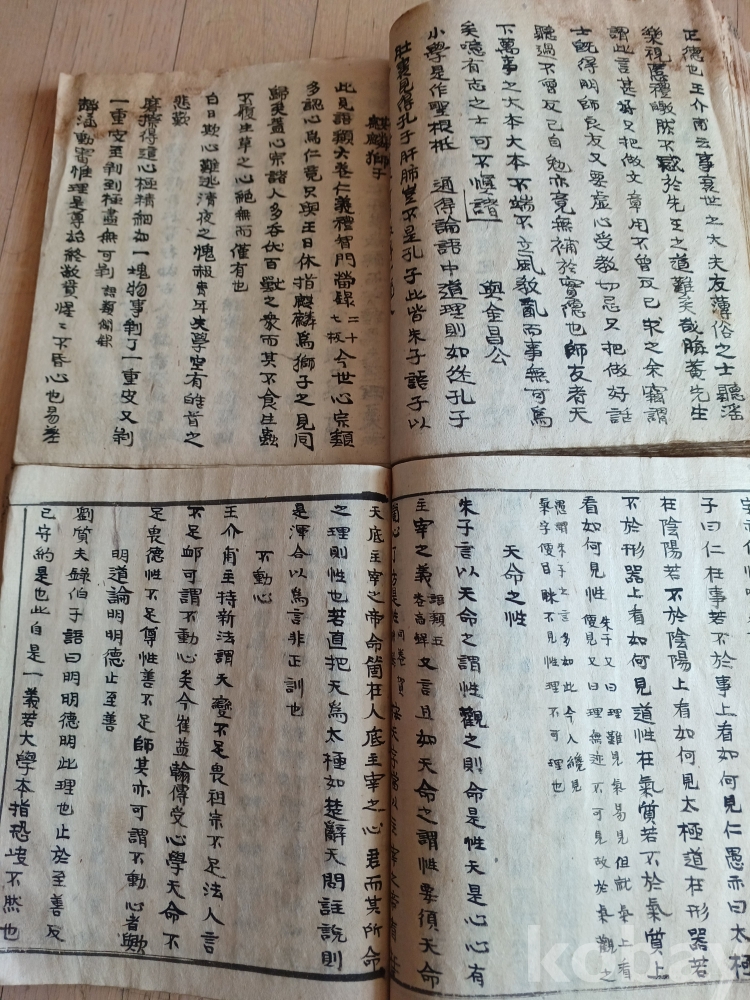 正德也王介甫云事衰世之大夫友薄俗之士聽淫
樂視慝禮皦然不惑於先王之道難矣哉晦菴先生
謂此言甚好又把做文章用不曾反己求之余竊謂
士旣得明師良友又要虛心受敎切忌又把做好話
聽過不曾反己自勉亦竟無補於實德也師友者天
下萬事之大本大本不端不立風敎亂而事無可爲
矣噫有志之士可不惺諸 與金昌公
小學是作聖根柢 通得論語中道理則如從孔子
肚裏見得孔子肝肺豈不是孔子此皆朱子語子以
麒麟獅子
此見語類六卷仁義禮智門錄二十七板今世心宗類
多認心爲仁竟只與王日休指麒麟爲獅子之見同
歸矣盖心宗諸人多吞伏百獸之衆而其不食生蟲
不履生草之心絶無而僅有也
白日欺心難逃淸夜之愧靑年失學空有皓首之
悲歎
磨擦得這心極精細如一塊物事剝了一重皮又剝
一重皮至剝到極盡無可剝 語類
涵動靜性理是尊始終敬貫惺惺不昏心也易差
子曰仁在事若不於事上看如何見仁愚亦曰太極
在陰陽若不於陰陽上看如何見太極道在形器若
不於形器上看如何見道性在氣質若不於氣質上
看如何見性 朱子又曰理難見氣易見但就氣上看
便見又曰理無迹不可見故於氣觀之
愚謂朱子之言多如此今人纔見
氣字便目眯不見性理不可理也
天命之性
朱子言以天命之謂性觀之則命是性天是心心有
主宰之義 語類五卷 又言且如天命之謂性要須天命
天底主宰之帝命箇在人底主宰之心君而其所命
之理則性也若直把天爲太極如楚辭天問註說則
是渾合以爲言非正訓也
不動心
王介甫主持新法謂天變不足畏祖宗不足法人言
不足卹可謂不動心矣今崔益翰傳受心學天命不
足畏德性不足尊性善不足師其亦可謂不動心者歟
明道論明明德止至善
劉質夫錄伯子語曰明明德明此理也止於至善反
己守約是也此自是一義若大學本指恐不然也
kobay